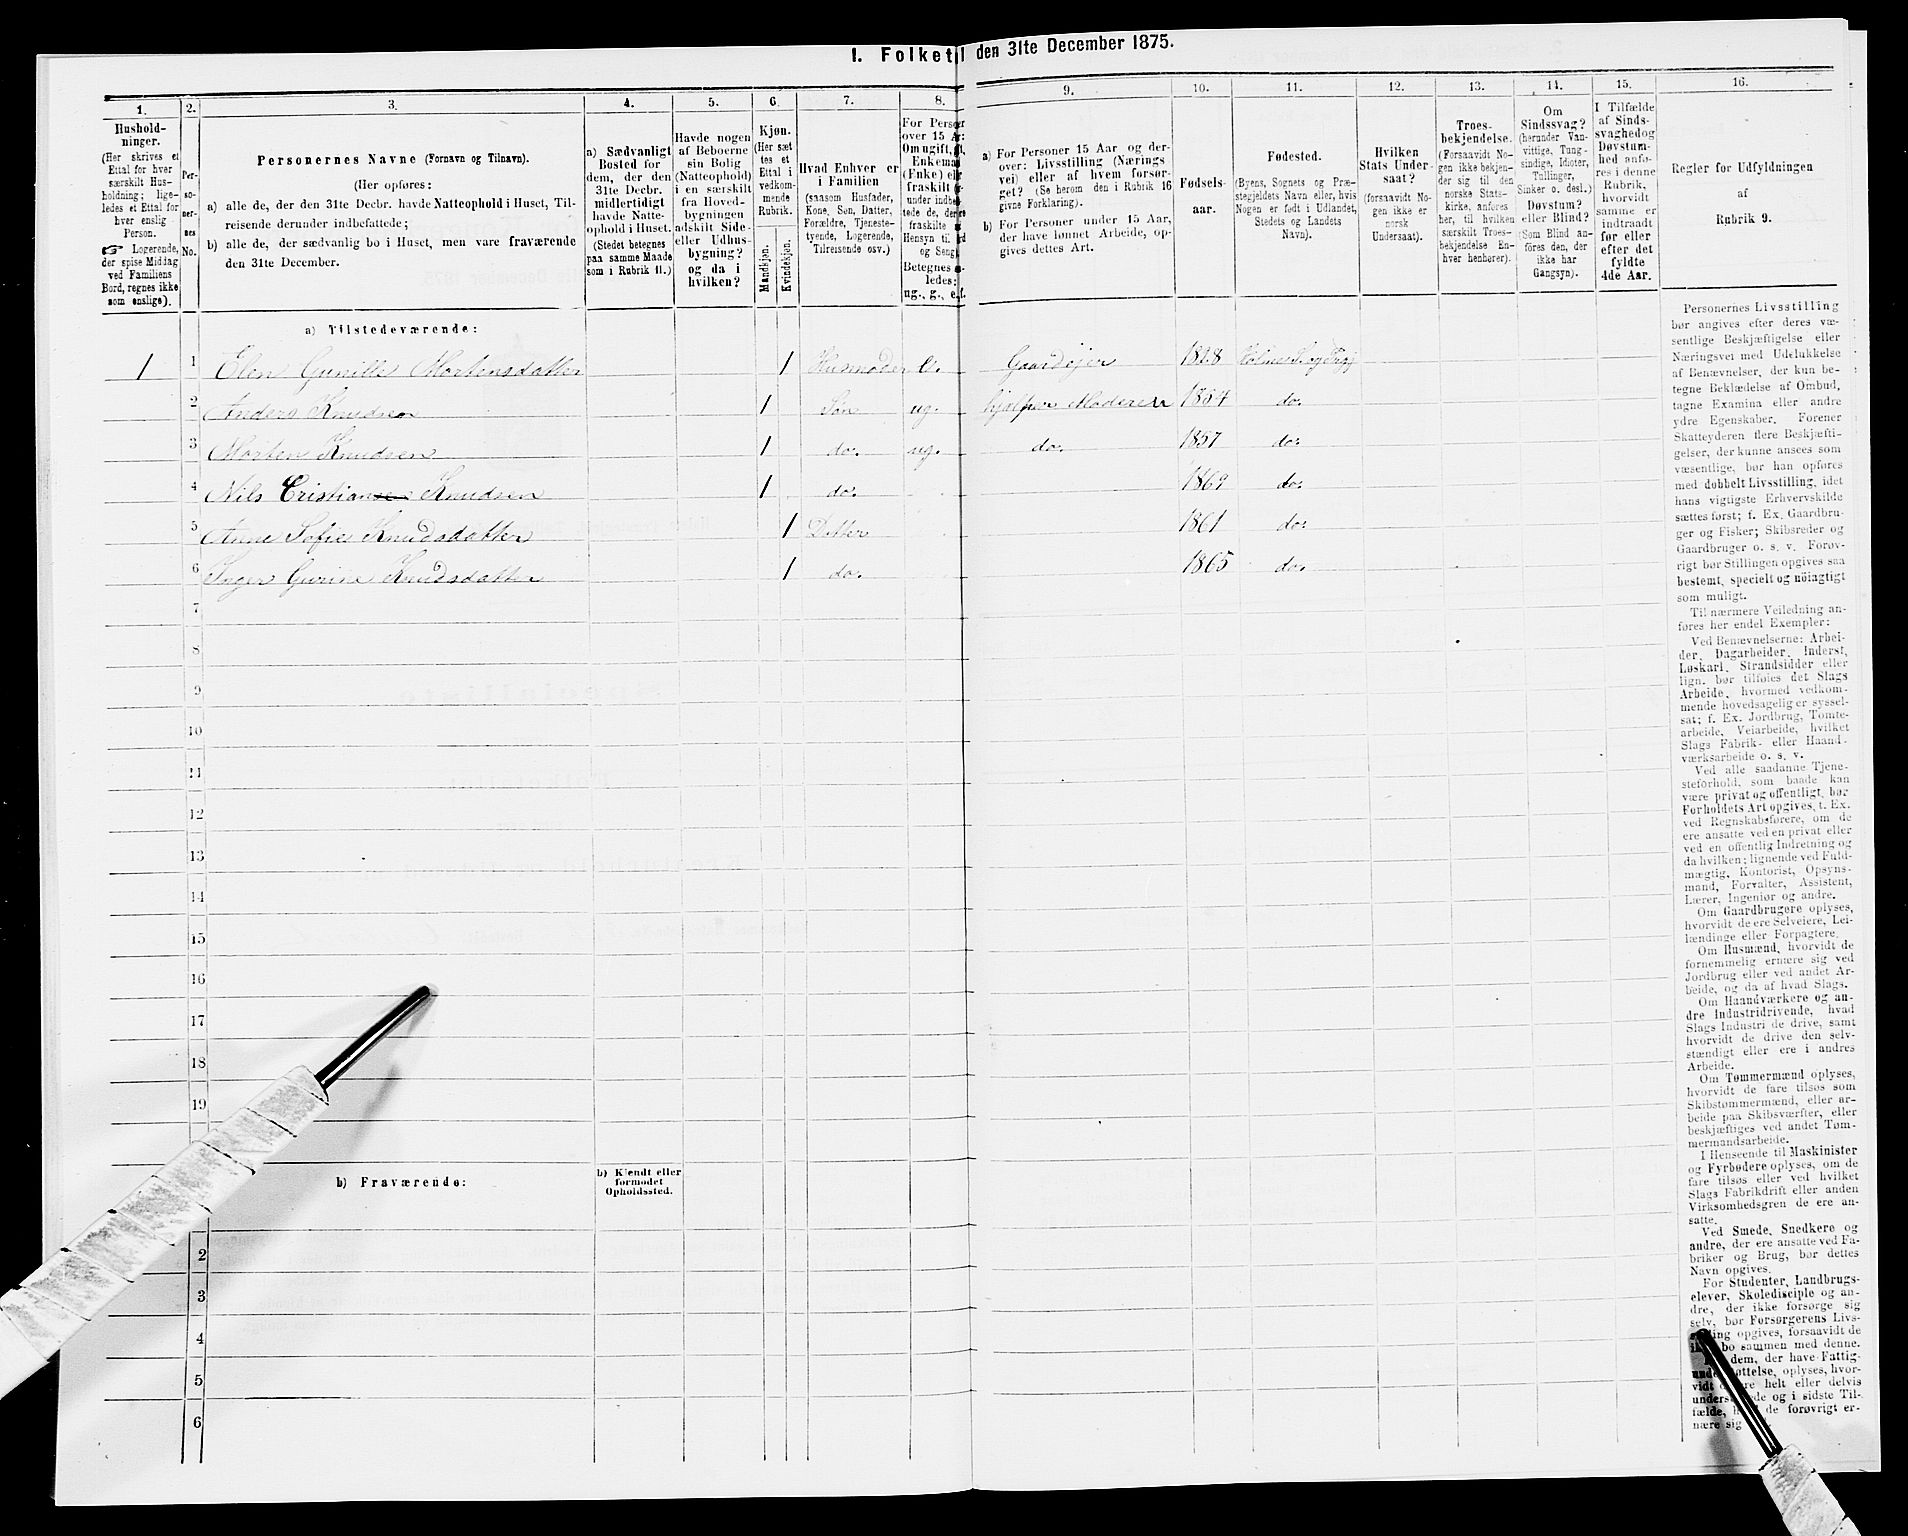 I. Folketæl
den 31te December 1875.
1.
2.
3.
4.
5.
6.
7.
8.
9.
10.
11.
12.
13.
14.
15.
16.
Hushold-
ninger.
(Her skrives et
Ettal for hver
særskilt Hus-
holdning; lige-
ledes et Ettal for
hver enslig
Person.
☞ Logerende,
der spise Middag
ved Familiens
Bord, regnes ikke
som enslige).
Per-
so-
ner-
nes
No.
Personernes Navne (Fornavn og Tilnavn).
(Her opføres:
a) alle de, der den 31te Decbr. havde Natteophold i Huset, Til-
reisende derunder indbefattede;
b) alle de, der sædvanlig bo i Huset, men vare fraværende
den 31te December.
a) Sædvanligt
Bosted for
dem, der den
31te Decbr.
midlertidigt
havde Natte-
ophold i Huset.
(Stedet betegnes
paa samme Maade
som i Rubrik 11.)
Havde nogen
af Beboerne
sin Bolig
(Natteophold)
i en særskilt
fra Hoved-
bygningen
adskilt Side-
eller Udhus-
bygning?
og da i
hvilken?
Kjøn.
(Her sæt
tes et
Ettal i
vedkom-
mende
Rubrik.
Mandkjøn.
Kvindekjøn.
Hvad Enhver er
i Familien
(saasom Husfader,
Kone, Søn, Datter,
Forældre, Tjeneste-
tyende, Logerende,
Tilreisende osv.)
For Person
over 15 A
Om ugift,
Enkema
(Enke) el
fraskilt
under indbe
tede de, de
fraskilte
Hensyn til
og Seng
Betegnes
ledes:
ug., g., e
a) For Personer 15 Aar og der-
over: Livsstilling (Nærings
vei) eller af hvem forsør-
get? (Se herom den i Rubrik 16
givne Forklaring).
b) For Personer under 15 Aar,
der have lønnet Arbeide, op-
gives dettes Art.
Fødsels-
aar.
Fødested.
(Byens, Sognets og Præ-
stegjeldets Navn eller, hvis
Nogen er født i Udlandet,
Stedets og Landets
Navn).
Hvilken
Stats Under-
saat?
(forsaavidt No-
gen ikke er
norsk
Undersaat).
Troes-
bekjendelse.
(Forsaavidt No-
gen ikke bekjen-
der sig til den
norske Stats-
kirke, anføres
her, til hvilken
særskilt Troes-
bekjendelse En-
hver henhører).
Om
Sindssvag?
(herunder Van-
vittige, Tung-
sindige, Idioter,
Tullinger,
Sinker o. desl.)
Døvstum?
eller Blind?
(Som Blind an-
føres den, der
ikke har
Gangsyn).
I Tilfælde
af Sinds-
svaghedog
Døvstum-
hed anfø-
res i denne
Rubrik,
hvorvidt
samme er
indtraadt
før eller
efter det
fyldte
4de Aar.
Regler for Udfyldningen
af
Rubrik 9.
a) Tilstedeværende:
1 1 Elen Gunille Mortensdatter 1 Husmoder e. Gaardejer 1828
2 Anders Knudsen 1 Søn ug. hjælper Moderen 1854 do.
3 Morten Knudsen 1 do. ug. do. 1857 do.
4 Nils Cristiansen Knudsen 1 do. 1869 do.
5 Anne Sofie Knudsdatter 1 Datter 1861 do.
6 Inger Gurine Knudsdatter 1 do. 1865 do.
7
8
9
10
11
12
13
14
15
16
17
18
19
b) Fraværende:
b) Kjendt eller
formodet
Opholdssted.
2
3
4
5
6
Personernes Livsstilling
bør angives efter deres væ-
sentlige Beskjæftigelse eller
Næringsvei med Udelukkelse
af Benævnelser, der kun be-
tegne Beklædelse af Ombud,
tagne Examina eller andre
ydre Egenskaber. Forener
Skatteyderen flere Beskjæfti-
gelser, der kunne ansees som
væsentlige, bør han opføres
med dobbelt Livsstilling, idet
hans vigtigste Erhvervskilde
sættes først; f. Ex. Gaardbru-
ger og Fisker; Skibsreder og
Gaardbruger o. s. v. Forøv-
rigt bør Stillingen opgives saa
bestemt, specielt og nøiagtigt
som muligt.
Til nærmere Veiledning an-
føres her endel Exempler:
Ved Benævnelserne: Arbei-
der, Dagarbeider, Inderst,
Løskarl, Strandsidder eller
lign. bør tilføies det Slags
Arbeide, hvormed vedkom-
mende hovedsagelig er syssel-
sat; f. Ex. Jordbrug, Tomte-
arbeide, Veiarbeide, hvilket
Slags Fabrik- eller Haand-
værksarbeide o. s. v.
Ved alle saadanne Tjene-
steforhold, som baade kan
være privat og offentligt, bør
Forholdets Art opgives, t. Ex.
ved Regnskabsførere, om de
ere ansatte ved en privat eller
ved en offentlig Indretning og
da hvilken; lignende ved Fuld-
mægtig, Kontorist, Opsyns-
mand, Forvalter, Assistent,
Lærer, Ingeniør og andre.
Om Gaardbrugere oplyses,
hvorvidt de ere Selveiere, Lei-
lændinge eller Forpagtere.
Om Husmænd, hvorvidt de
fornemmelig ernære sig ved
Jordbrug eller ved andet Ar-
beide, og da af hvad Slags.
Om Haandværkere og an-
dre Industridrivende, hvad
Slags Industri de drive, samt
hvorvidt de drive den selv-
stændigt eller ere i andres
Arbeide.
Om Tømmermænd oplyses,
hvorvidt de fare tilsøs som
Skibstømmermænd, eller ar-
beide paa Skibsværfter, eller
beskjæftiges ved andet Tøm-
mermandsarbeide.
I Henseende til Maskinister
og Fyrbødere oplyses, om de
fare tilsøs eller ved hvilket
Slags Fabrikdrift eller anden
Virksomhedsgren de ere an-
satte.
Ved Smede, Snedkere og
andre, der ere ansatte ved Fa-
briker og Brug, bør dettes
Navn opgives.
For Studenter, Landbrugs-
elever, Skoledisciple og an-
dre, der ikke forsørge sig
selv, bør Forsørgerens Livs-
ling opgives, forsaavidt de
bo sammen med denne.
dem, der have Fattig-
oplyses, hvor-
vidt helt eller delvis
og i sidste Til-
fælde, de forøvrigt er-
nære sig